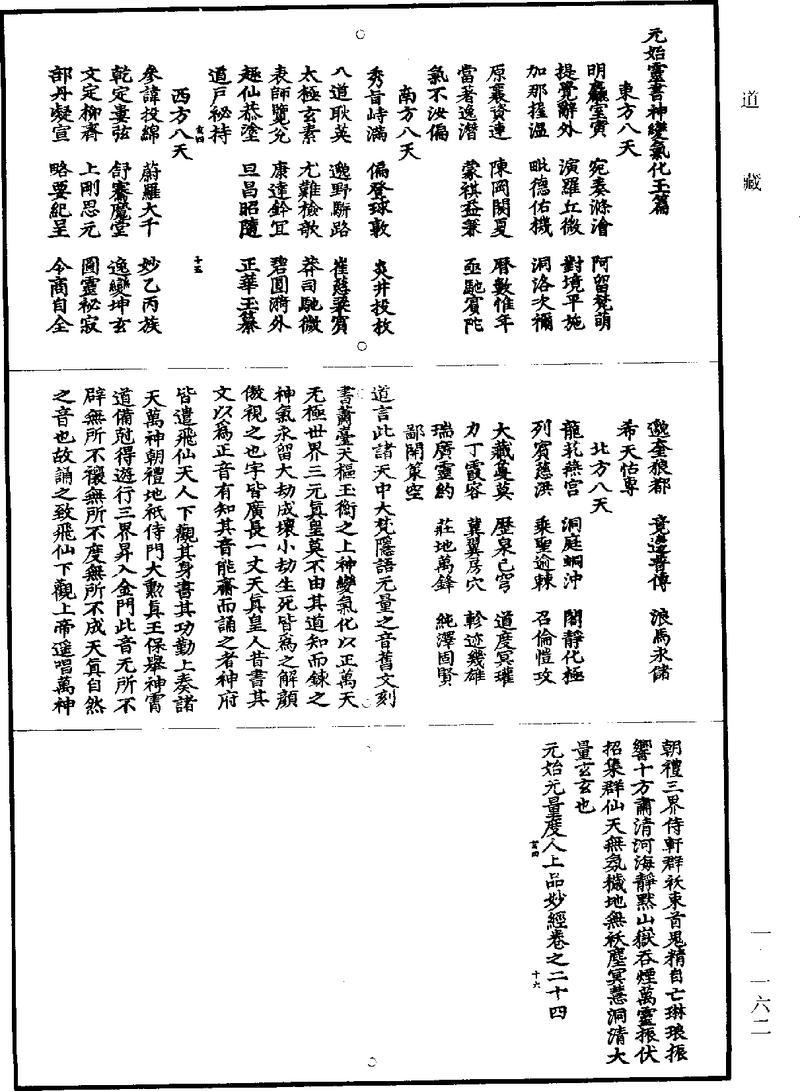 道藏
元始靈書神變氣化玉篇
東方八天
明𪚥室寅 宛奏滌澮 阿留梵萌
提覺辭外 演羅丘微 對境平施
加那握溫 毗德佑機 洞洛次禰
原襄資連 陳岡闕夏 曆數惟年
當著逸潛 蒙祺益兼 亟馳賓陀
氣不汝偏
南方八天
秀旨峙滿 偏登球敷 炎井投枚
八道耿英 逸野駢路 崔慈梁賓
太極玄素 尤難檢欹 莽司馳微
表師覽允 康達鈐宜 碧圓漪外
趣仙恭塗 旦昌昭隨 正華玉纂
道戸祕持
玄四
十五
西方八天
參諱投綿 蔚羅大千 妙乙丙族
乾定婁弦 舒騫魔堂 逸變坤玄
文定柳齊 上剛思元 圖靈祕寂
部丹凝宣 略要紀呈 令商自全
邈奎狼都 竟邊普傳 浪馬永儲
希天怙專
北方八天
龍花燕宮 洞庭蜩沖 閣靜化極
列賓慈洪 乘聖逾棘 召倫愷攻
大藏蔓莫 歷泉已穹 道度冥璀
力丁霞容 冀翼房穴 軫迹幾雄
瑞廣靈約 莊地萬鋒 純澤固賢
鄙閉策空
道言此諸天中大梵隱語元量之音舊文刻
書蕭臺天樞玉衡之上神變氣化以正萬天
无極世界三元眞皇莫不由其道知而鍊之
神氣永留大劫成壞小劫生死皆爲之解顏
傲視之也字皆廣長一丈天眞皇人昔書其
文以爲正音有知其音能齋而誦之者神府
皆遣飛仙天人下觀其身書其功勤上奏諸
天萬神朝禮地祇侍門大勳眞王保舉神霄
道備尅得遊行三界昇入金門此音无所不
辟無所不禳無所不度無所不成天眞自然
之音也故誦之致飛仙下觀上帝遥唱萬神
朝禮三界侍軒群祅束首鬼精自亡琳琅振
響十方肅清河海靜默山嶽吞煙萬靈振伏
招集群仙天無氛穢地無袄塵冥慧洞清大
量玄玄也
元始元量度人上品妙經卷之二十四
玄四
十六
一·一六二